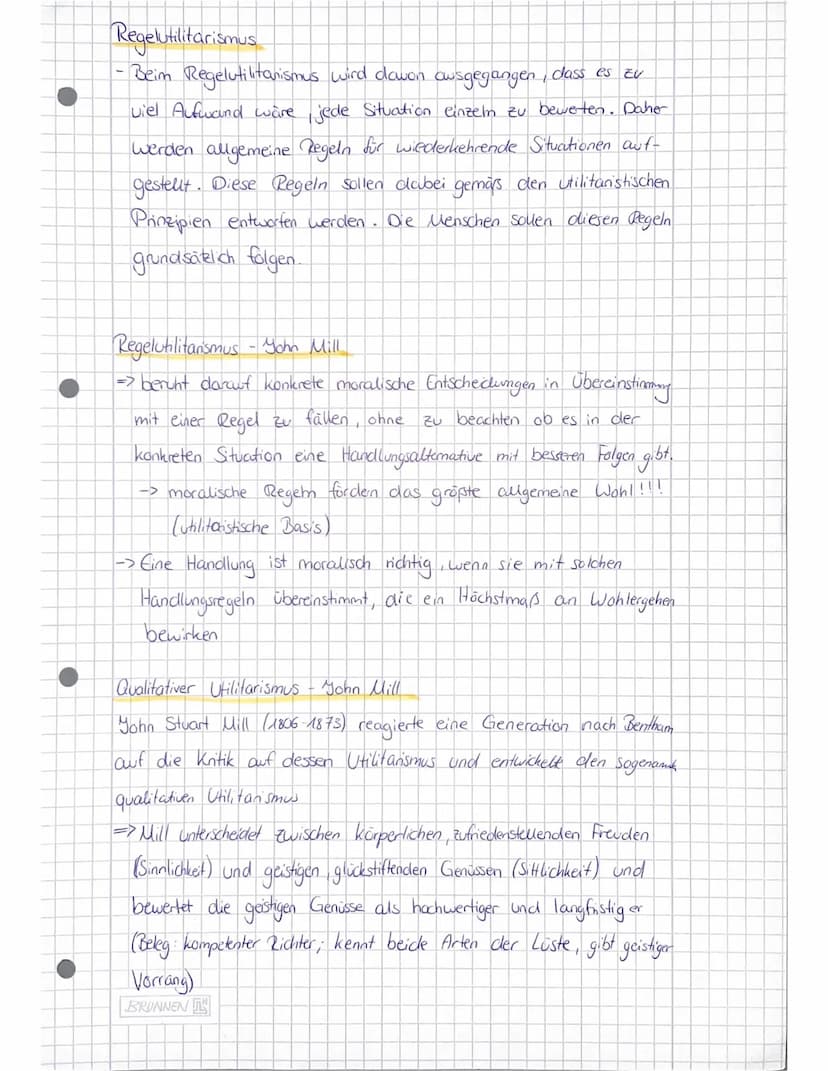 Regelutilitarismus
- Beim Regelutilitarismus wird davon ausgegangen, dass es zu
viel Aufwand wäre, jede Situation einzeln zu bewerten. Daher
werden allgemeine Regeln für wiederkehrende Situationen auf-
gestellt. Diese Regeln sollen dabei gemäß den utilitaristischen
Prinzipien entworfen werden. Die Menschen sollen diesen Regeln
grundsätzlich folgen.
Regelutilitarismus - John Mill
=> beruht darauf konkrete moralische Entscheidungen in Übereinstimmung
mit einer Regel zu fällen, ohne zu beachten ob es in der
konkreten Situation eine Handlungsalternative mit besseren Folgen gibt.
-> moralische Regeln fördern das größte allgemeine Wohl!!!
(utilitaristische Basis)
-> Eine Handlung ist moralisch richtig, wenn sie mit solchen
Handlungsregeln übereinstimmt, die ein Höchstmaß an Wohlergehen
bewirken
Qualitativer Utilitarismus - John Mill
John Stuart Mill (1806-1873) reagierte eine Generation nach Bentham
auf die Kritik auf dessen Utilitarismus und entwickelt den sogenannt
qualitativen Utilitarismus
=> Mill unterscheidet zwischen körperlichen, zufriedenstellenden Freuden
(Sinnlichkeit) und geistigen, glückstiftenden Genüssen (Sittlichkeit) und
bewertet die geistigen Genüsse als hochwertiger und langfristiger
(Beleg: kompetenter Richter; kennt beide Arten der Lüste, gibt geistiger
Vorrang)
BRUNNEN